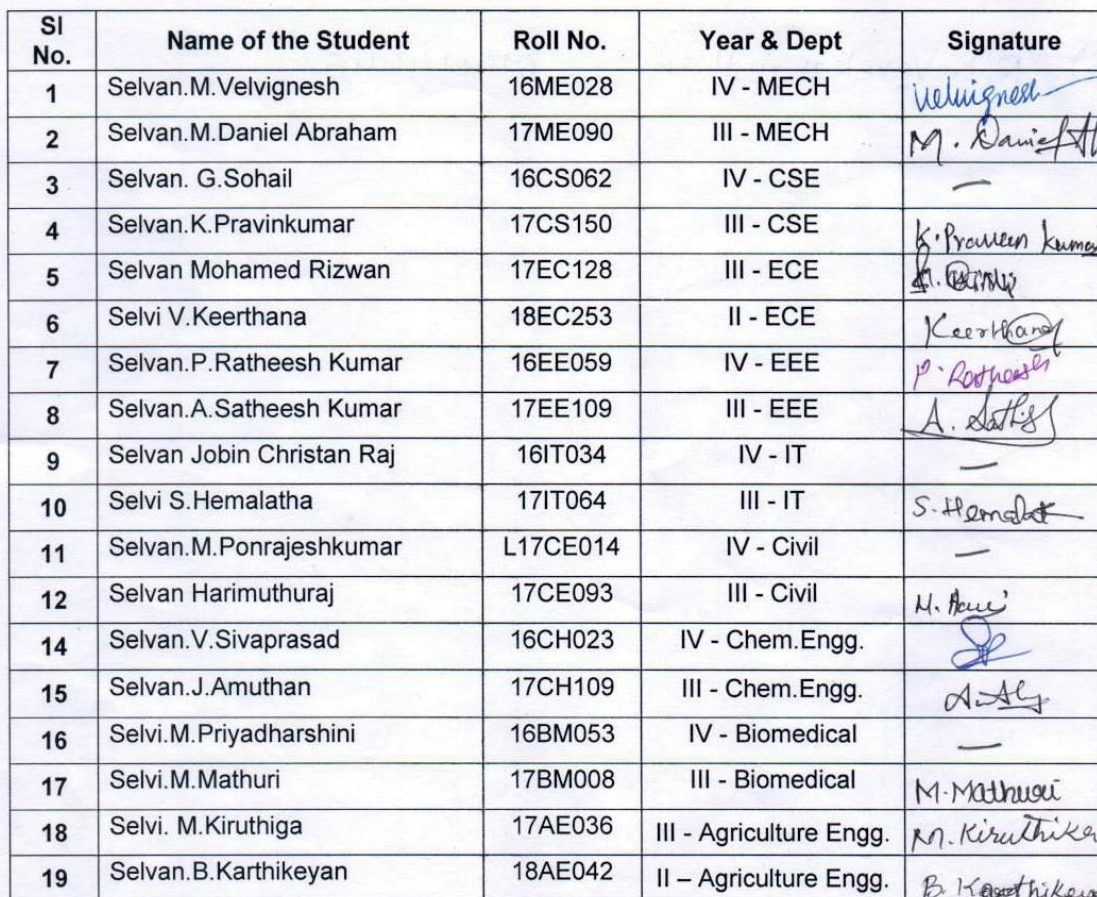 Sl No. Name of the Student Roll No. Year & Dept Signature
1 Selvan.M.Velvignesh 16ME028 IV - MECH Velvignesh
2 Selvan.M.Daniel Abraham 17ME090 III - MECH M. Daniel Ab
3 Selvan. G.Sohail 16CS062 IV - CSE —
4 Selvan.K.Pravinkumar 17CS150 III - CSE K. Praveen Kumar
5 Selvan Mohamed Rizwan 17EC128 III - ECE
6 Selvi V.Keerthana 18EC253 II - ECE Keerthana
7 Selvan.P.Ratheesh Kumar 16EE059 IV - EEE P. Ratheesh
8 Selvan.A.Satheesh Kumar 17EE109 III - EEE A. Sathis
9 Selvan Jobin Christan Raj 16IT034 IV - IT —
10 Selvi S.Hemalatha 17IT064 III - IT S. Hemalat
11 Selvan.M.Ponrajeshkumar L17CE014 IV - Civil —
12 Selvan Harimuthuraj 17CE093 III - Civil M. Hari
14 Selvan.V.Sivaprasad 16CH023 IV - Chem.Engg.
15 Selvan.J.Amuthan 17CH109 III - Chem.Engg.
16 Selvi.M.Priyadharshini 16BM053 IV - Biomedical —
17 Selvi.M.Mathuri 17BM008 III - Biomedical M. Mathuri
18 Selvi. M.Kiruthiga 17AE036 III - Agriculture Engg. M. Kiruthika
19 Selvan.B.Karthikeyan 18AE042 II – Agriculture Engg. B. Karthikeyan